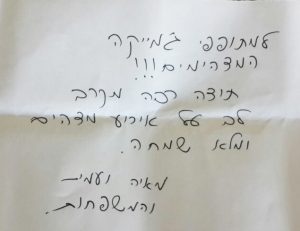 למתופפי ג'מייקה
המדהימים!!!
תודה רבה מקרב
לב על אירוע מדהים
ומלא שמחה.
מאיה ועמית
והמשפחות.